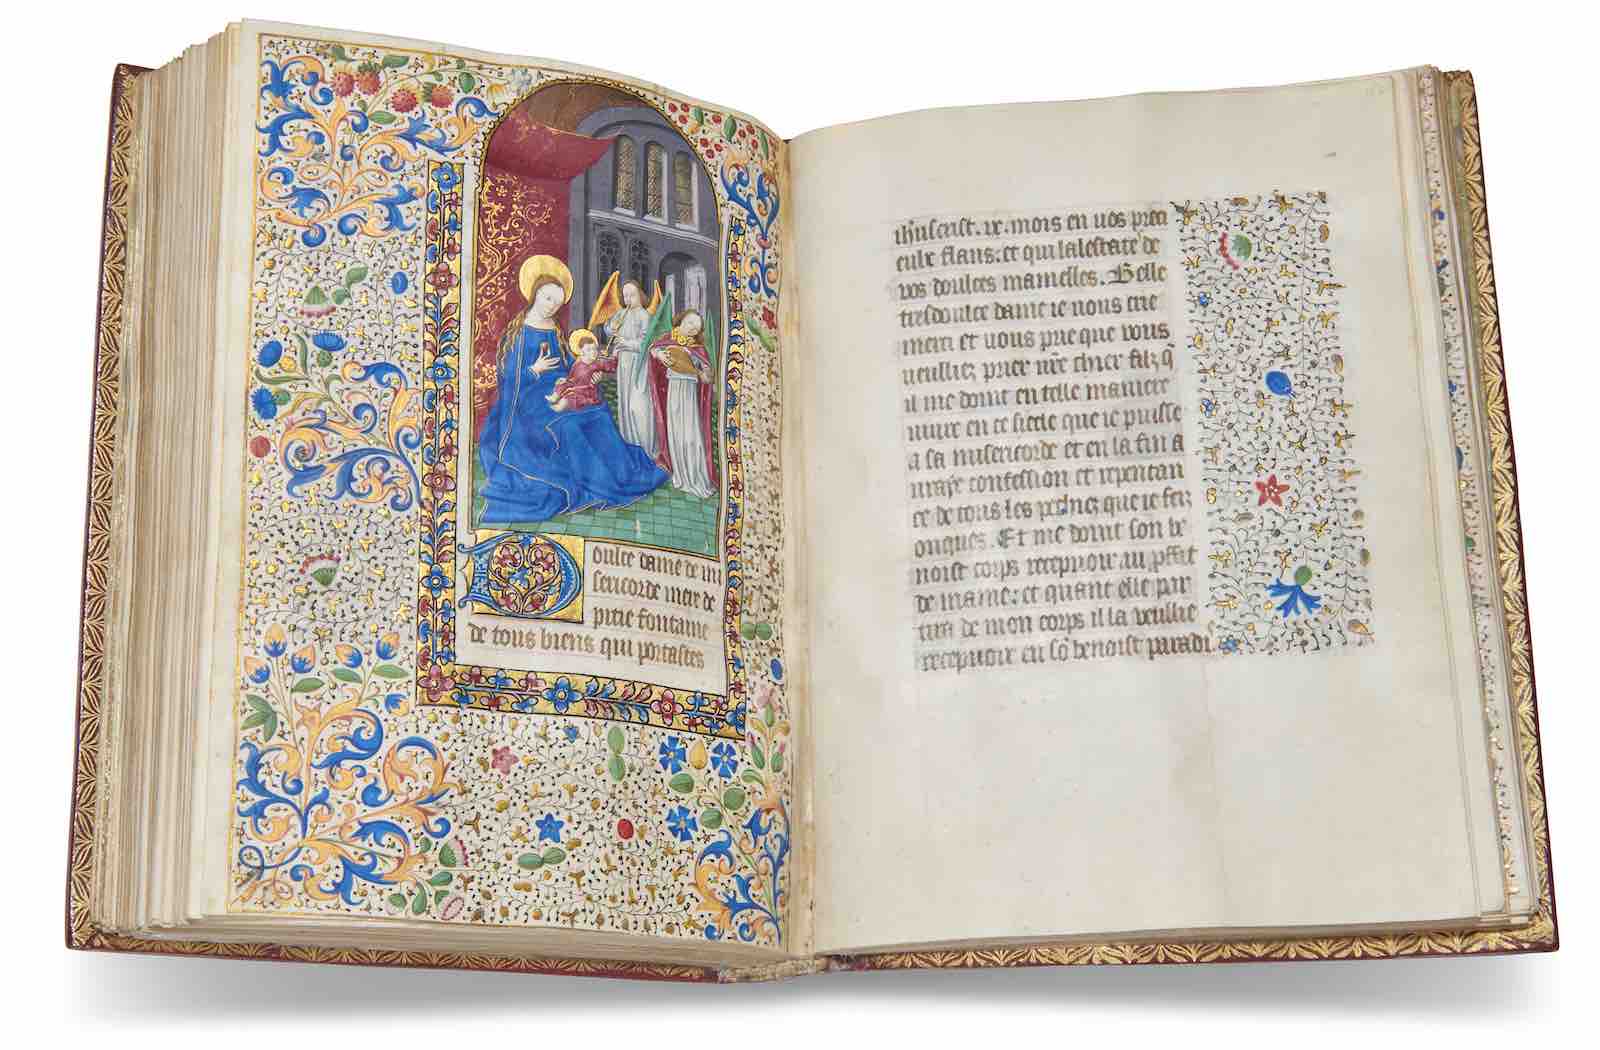 Doulce dame de mi
sericorde mere de
pitie fontaine
de tous biens qui portastes
ihu crist. ix. mois en vos preci
eulx flans: et qui lalestate de
vos doulces mamelles. Belle
tresdoulce dame ie nous crie
merci et vous prie que vous
veulliez prier nr̄e chier filz q̄
il me doint en telle maniere
viure en ce siecle que ie puisse
a sa misericorde et en la fin a
vraye confession et repentan
ce de tous les pechiez que ie feiz
onques. Et me doint son be
noist corps recepuoir au
de mame: et quant elle par
tira de mon corps il la veulle
recepuoir en sō benoist paradi.